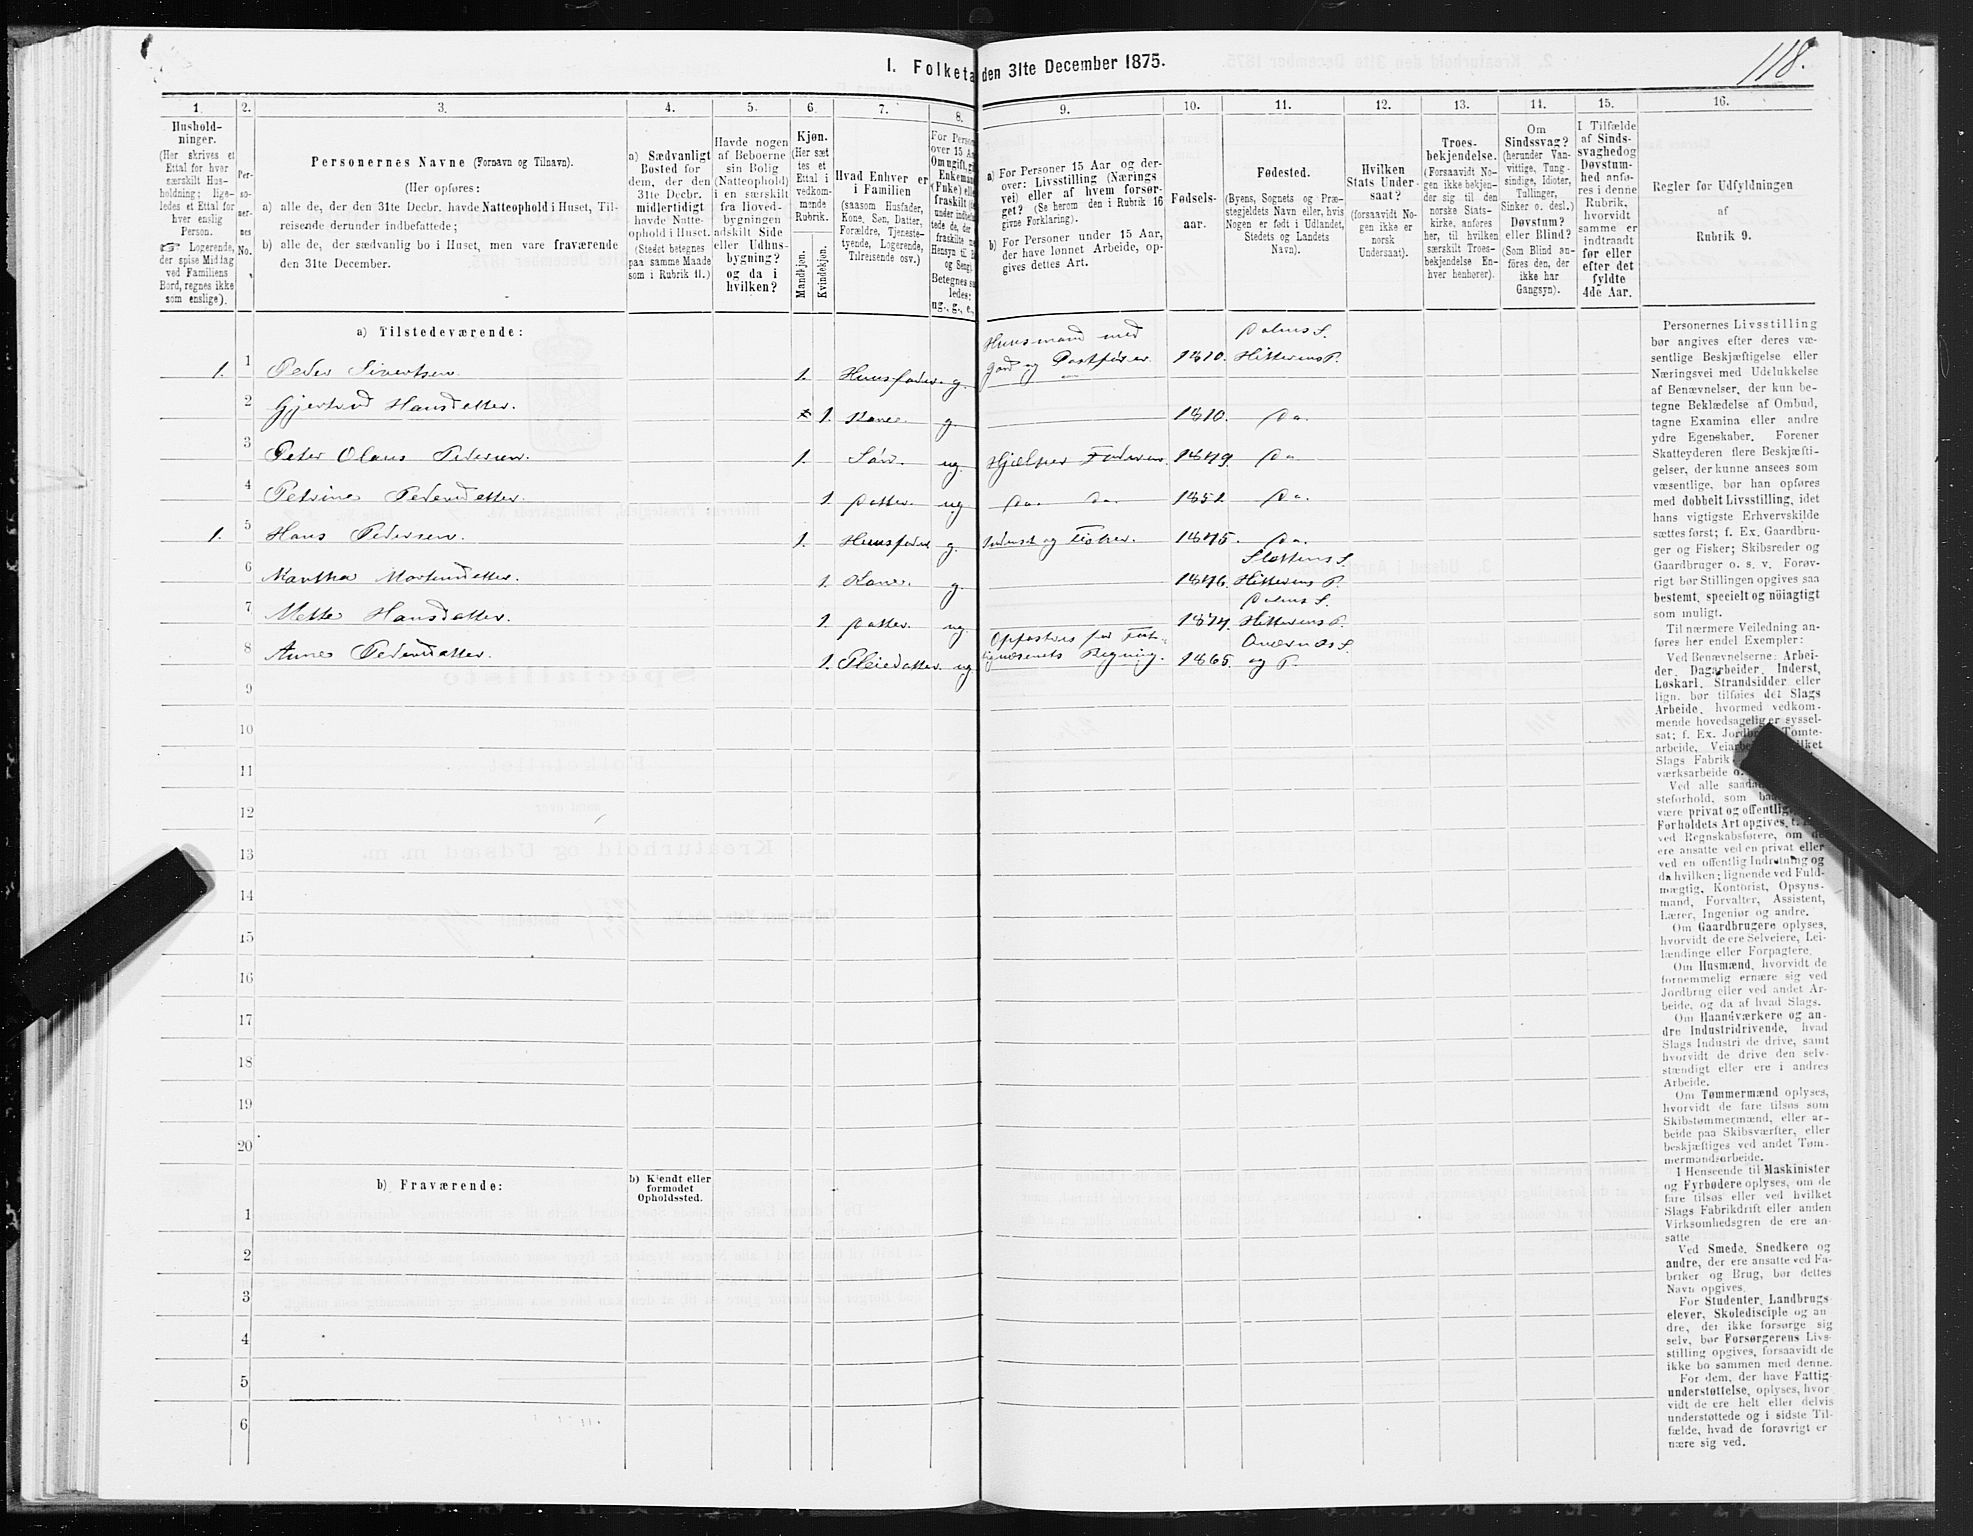 118.
I. Folketæ den 31te December 1875.
1. 2. 3. 4. 5. 6. 7. 8. 9. 10. 11. 12. 13. 14. 15. 16.
Hushold-
ninger.
(Her skrives et
Ettal for hver
særskilt Hus-
holdning; lige-
ledes et Ettal for
hver enslig
Person.
☞ Logerende,
der spise Middag
ved Familiens
Bord, regnes ikke
som enslige).
Per-
so-
ner-
nes
No.
Personernes Navne (Fornavn og Tilnavn).
(Her opføres:
a) alle de, der den 31te Decbr. havde Natteophold i Huset, Til-
reisende derunder indbefattede;
b) alle de, der sædvanlig bo i Huset, men vare fraværende
den 31te December.
a) Sædvanligt
Bosted for
dem, der den
31te Decbr.
midlertidigt
havde Natte-
ophold i Huset.
(Stedet betegnes
paa samme Maade
som i Rubrik 11.)
Havde nogen
af Beboerne
sin Bolig
(Natteophold)
i en særskilt
fra Hoved-
bygningen
adskilt Side
eller Udhus-
bygning?
og da i
hvilken?
Kjøn.
(Her sæt
tes et
Ettal i
vedkom-
mende
Rubrik.
Mandkjøn.
Kvindekjøn.
Hvad Enhver er
i Familien
(saasom Husfader,
Kone, Søn, Datter,
Forældre, Tjeneste-
tyende, Logerende,
Tilreisende osv.)
For Person
over 15 Aa
Om ugift, gi
Enkeman
(Fnke) elle
fraskilt
under indbef
tede de, der
fraskilte
Hensyn til B
og Seng).
Betegnes sa
ledes:
ug., g., e.,
a) For Personer 15 Aar og der-
over: Livsstilling (Nærings
vei) eller af hvem forsør-
get? (Se herom den i Rubrik 16
givne Forklaring).
b) For Personer under 15 Aar,
der have lønnet Arbeide, op-
gives dettes Art.
Fødsels-
aar.
Fødested.
(Byens, Sognets og Præ-
stegjeldets Navn eller, hvis
Nogen er født i Udlandet,
Stedets og Landets
Navn).
Hvilken
Stats Under-
saat?
(forsaavidt No-
gen ikke er
norsk
Undersaat).
Troes-
bekjendelse.
(Forsaavidt No-
gen ikke bekjen-
der sig til den
norske Stats-
kirke, anføres
her, til hvilken
særskilt Troes-
bekjendelse En-
hver henhører).
Om
Sindssvag?
(herunder Van-
vittige, Tung-
sindige, Idioter,
Tullinger,
Sinker o. desl.)
Døvstum?
eller Blind?
(Som Blind an-
føres den, der
ikke har
Gangsyn).
I Tilfælde
af Sinds-
svaghed og
Døvstum-
hed anfø-
res i denne
Rubrik,
hvorvidt
samme er
indtraadt
før eller
efter det
fyldte
4de Aar.
Regler for Udfyldningen
af
Rubrik 9.
a) Tilstedeværende:
1. 1 Peder Sivertsen. 1. Huusfader. g. Huusmand med Jord og Postfører 1810. Dolms S. Hitterens P.
2 Gjertrud Hansdatter. 1. Kone. g. 1810. Do.
3 Peter Olaus Pedersen. 1. Søn. ug. Hjælper Faderen. 1849. Do
4 Petrine Pedersdatter. 1. Datter ug Do. Do. 1851. Do.
1. 5 Hans Pedersen. 1. Huusfader g. Inderst og Fisker. 1845. Do.
6 Martha Mortensdatter. 1. Kone. g. 1846. Slottens S. Hitterens P.
7 Mette Hansdatter. 1. Datter. ug. 1874. Dolms S. Hitterens P.
8 Anne Pedersdatter. 1. Pleiedatter ug. Opfostres for Fat-
tigvæsenets Regning. 1865. S. og P.
9
10
11
12
13
14
15
16
17
18
19
20
b) Fraværende:
b) Kjendt eller
formodet
Opholdssted.
1
2
3
4
5
6
Personernes Livsstilling
bør angives efter deres væ-
sentlige Beskjæftigelse eller
Næringsvei med Udelukkelse
af Benævnelser, der kun be-
tegne Beklædelse af Ombud,
tagne Examina eller andre
ydre Egenskaber. Forener
Skatteyderen flere Beskjæfti-
gelser, der kunne ansees som
væsentlige, bør han opføres
med dobbelt Livsstilling, idet
hans vigtigste Erhvervskilde
sættes først; f. Ex. Gaardbru-
ger og Fisker; Skibsreder og
Gaardbruger o. s. v. Forøv-
rigt bør Stillingen opgives saa
bestemt, specielt og nøiagtigt
som muligt.
Til nærmere Veiledning an-
føres her endel Exempler:
Ved Benævnelserne: Arbei-
der, Dagarbeider, Inderst,
Løskarl, Strandsidder eller
lign. bør tilføies det Slags
Arbeide, hvormed vedkom-
mende hovedsagelig er syssel-
sat; f. Ex. Jordbrug, Tomte-
arbeide, Veiarbeide, hvilket
Slags Fabrik-
værksarbeide o.
Ved alle saadanne
steforhold, som
være privat og offentlig,
Forholdets Art opgives, t.
ved Regnskabsførere, om de
ere ansatte ved en privat eller
ved en offentlig Indretning og
da hvilken; lignende ved Fuld-
mægtig, Kontorist, Opsyns-
mand, Forvalter, Assistent,
Lærer, Ingeniør og andre.
Om Gaardbrugere oplyses,
hvorvidt de ere Selveiere, Lei-
lændinge eller Forpagtere.
Om Husmænd, hvorvidt de
fornemmelig ernære sig ved
Jordbrug eller ved andet Ar-
beide, og da af hvad Slags.
Om Haandværkere og an-
dre Industridrivende, hvad
Slags Industri de drive, samt
hvorvidt de drive den selv-
stændigt eller ere i andres
Arbeide.
Om Tømmermænd oplyses,
hvorvidt de fare tilsøs som
Skibstømmermænd, eller ar-
beide paa Skibsværfter, eller
beskjæftiges ved andet Tøm-
mermandsarbeide.
I Henseende til Maskinister
og Fyrbødere oplyses, om de
fare tilsøs eller ved hvilket
Slags Fabrikdrift eller anden
Virksomhedsgren de ere an-
satte
Ved Smede, Snedkere og
andre, der ere ansatte ved Fa-
briker og Brug, bør dettes
Navn opgives.
For Studenter, Landbrugs
elever, Skoledisciple og an
dre, der ikke forsørge sig
selv, bør Forsørgerens Livs-
stilling opgives, forsaavidt de
ikke bo sammen med denne.
For dem, der have Fattig-
understøttelse, oplyses, hvor
vidt de ere helt eller delvis
understøttede og i sidste Til-
fælde, hvad de forøvrigt er
nære sig ved.